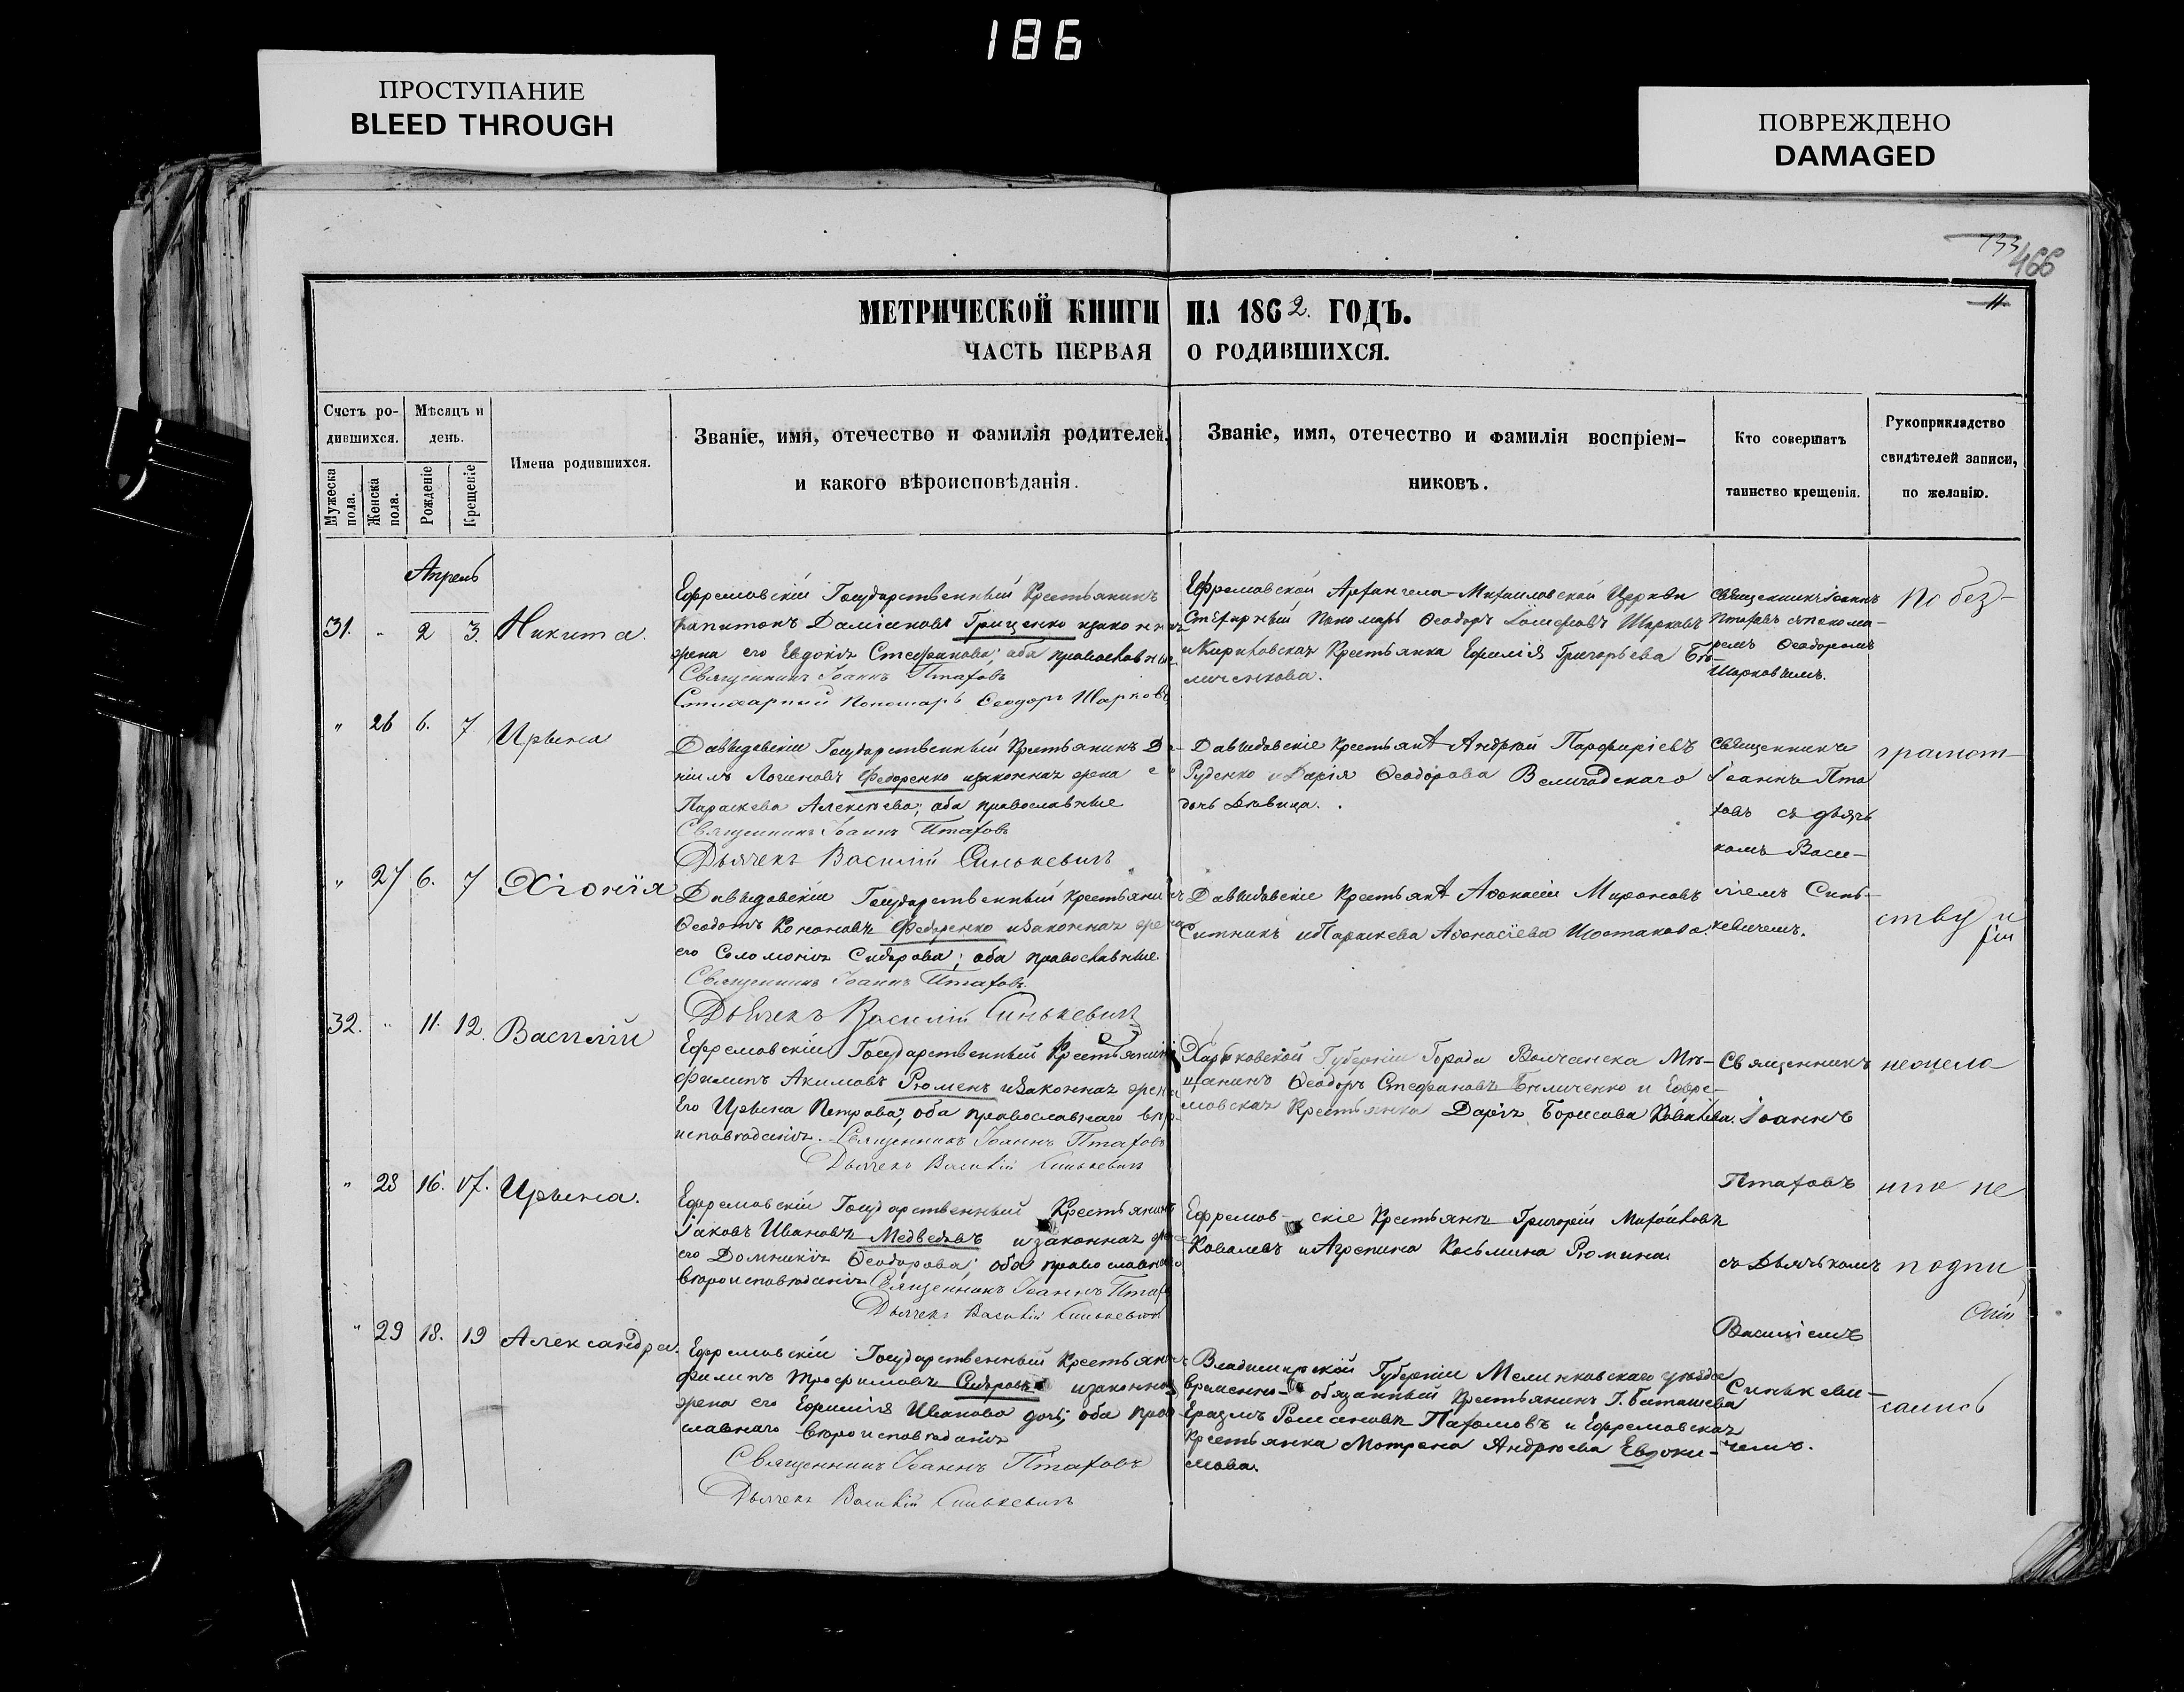 186
ПРОСТУПАНИЕ
BLEED THROUGH
ПОВРЕЖДЕНО
DAMAGED
733
466
11
МЕТРИЧЕСКОЙ КНИГИ НА 1862. ГОДЪ.
ЧАСТЬ ПЕРВАЯ О РОДИВШИХСЯ.
Счетъ ро-
дившихся.
Мужеска
пола.
Женска
пола.
Мѣсяцъ и
день.
Рожденіе
Крещеніе
Имена родившихся.
Званіе, имя, отечество и фамилія родителей,
и какого вѣроисповѣданія.
Званіе, имя, отечество и фамилія воспріем-
никовъ.
Кто совершалъ
таинство крещенія.
Рукоприкладство
свидѣтелей записи,
по желанію.
Апрель
31. " 2 3. Никита.
Ефремовскій Государственный Крестьянинъ
Капитонъ Даміановъ Гриценко и законная
жена его Евдокія Стефанова; оба православные
Священникъ Іоаннъ Птаховъ
Стихарный Пономарь Ѳеодоръ Шарковъ
Ефремовской Архангела-Михаиловской Церкви
Стихарный Пономарь Ѳеодоръ Іосифовъ Шарковъ
и Кириковская Крестьянка Ефимія Григорьева Бѣ-
личенкова.
Священникъ Іоаннъ
Птаховъ съ понома-
ремъ Ѳеодоромъ
Шарковымъ.
По без-
" 26 6. 7 Ирына
Давыдовскій Государственный Крестьянинъ Да-
ніилъ Логиновъ Федоренко и законная жена его
Параскева Алексѣева; оба православные
Священникъ Іоаннъ Птаховъ
Дьячекъ Василій Синькевичъ
Давыдовскіе Крестьяне Андрей Парфиріевъ
Руденко и Дарія Ѳеодорова Величадскаго
дочь Дѣвица.
Священникъ
Іоаннъ Пта
ховъ съ дьячь
комъ Васи-
грамот-
" 27 6. 7 Хіонія
Давыдовскій Государственный Крестьянинъ
Ѳеодотъ Кононовъ Федоренко и законная жена
его Соломонія Сидорова; оба православные
Священникъ Іоаннъ Птаховъ.
Дьячекъ Василій Синькевичъ
Давыдовскіе Крестьяне Аѳонасій Мироновъ
Ситникъ и Параскева Аѳонасіева Шостакова.
ліемъ Синь-
кевичемъ.
ству и
32. " 11. 12. Василій
Ефремовскій Государственный Крестьянинъ
Филипъ Акимовъ Рюменъ и законная жена
Его Ирына Петрова; оба православнаго вѣро-
исповѣданія. Священникъ Іоаннъ Птаховъ
Дьячекъ Василій Синькевичъ
Харьковской Губерніи Города Волчанска Мѣ-
щанинъ Ѳеодоръ Стефановъ Бѣличенко и Ефре-
мовская Крестьянка Дарія Борисова Ковалева.
Священникъ
Іоаннъ
неонела
" 28 16. 17. Ирына.
Ефремовскій Государственный Крестьянинъ
Іаковъ Ивановъ Медведевъ и законная жена
его Домникія Ѳеодорова; оба православнаго
вѣроисповѣданія Священникъ Іоаннъ Птах
Дьячекъ Василій Синькевичъ
Ефремов-скіе Крестьяне Григорій Михайловъ
Ковалевъ и Агрепина Косьмина Рюмина.
Птаховъ
съ Дьячькомъ
нпо не
подпи
" 29 18. 19 Александра.
Ефремовскій Государственный Крестьянинъ
Филипъ Трофимовъ Сидоровъ и законная
жена его Ефимія Иванова дочь; оба право-
славнаго вѣроисповѣданія
Священникъ Іоаннъ Птаховъ
Дьячекъ Василій Синькевичъ
Владимирской Губерніи Меленковскаго уѣзда
временно-обязанный Крестьянинъ Г. Баташева
Еразмъ Романовъ Пахомовъ и Ефремовская
Крестьянка Матрена Андрюева Евдоки-
мова.
Василіемъ
Синькеви-
чемъ.
сались